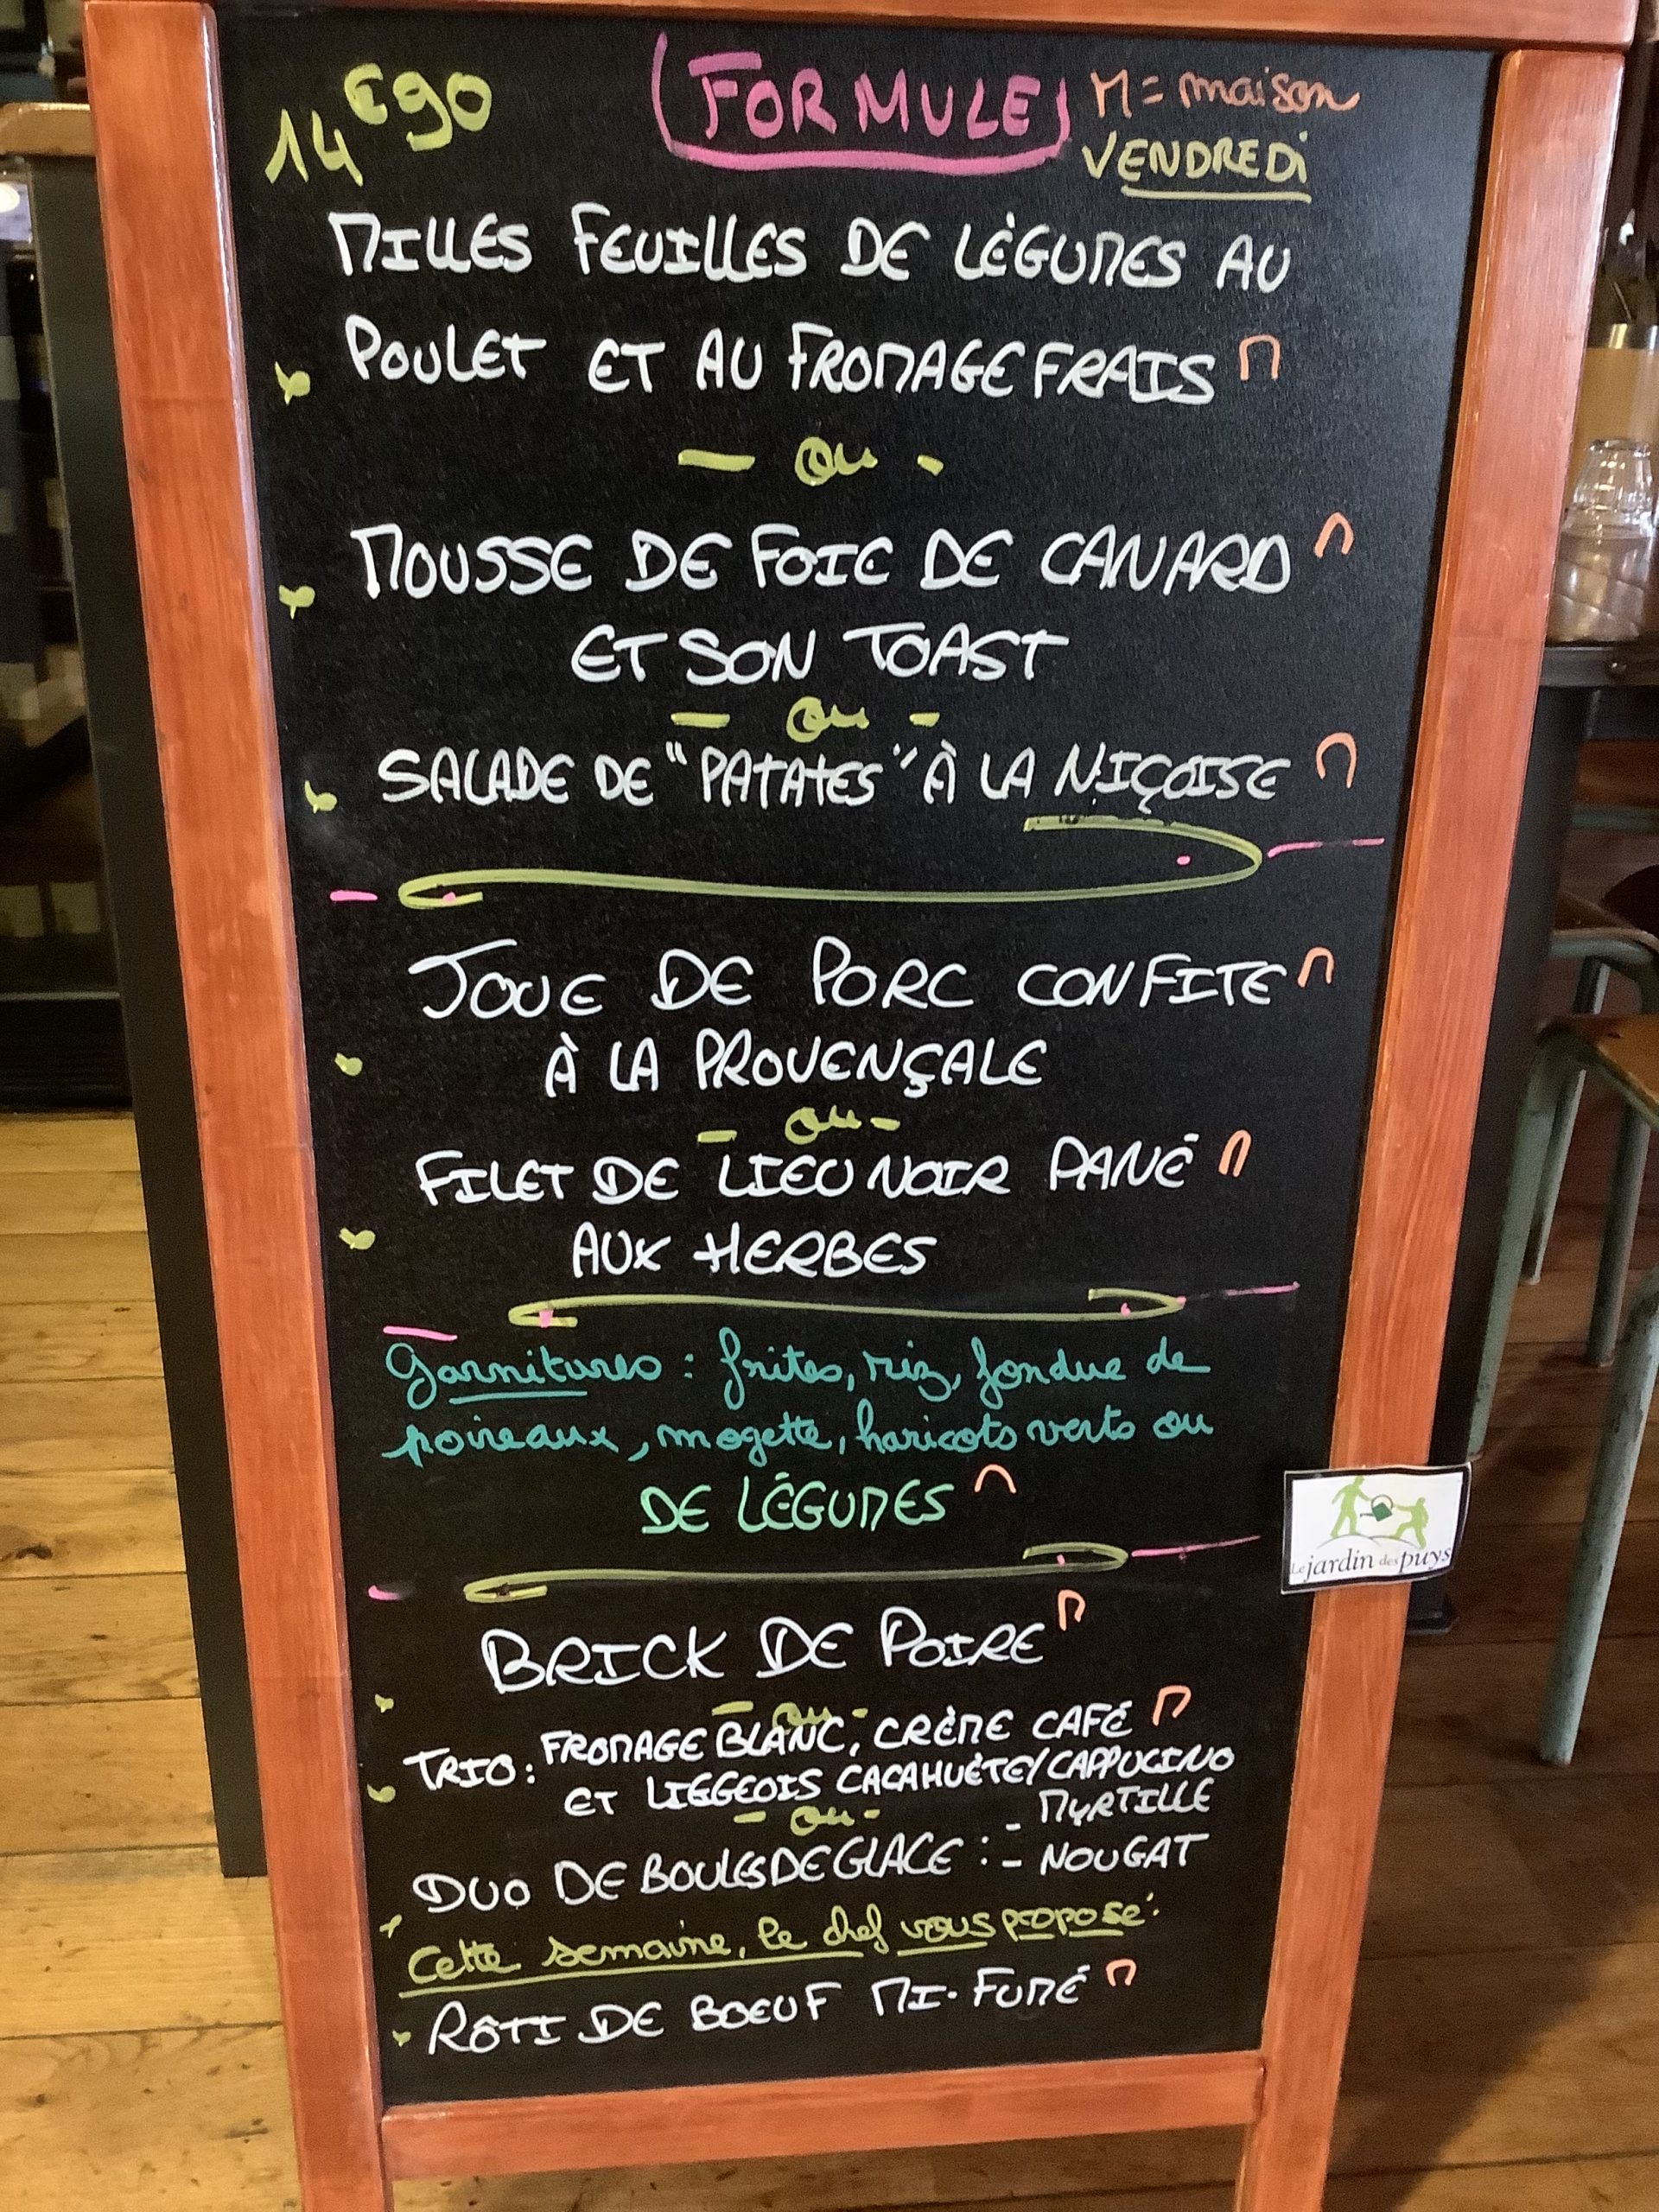 14€90
FORMULE
M = maison
VENDREDI
MILLES FEUILLES DE LÉGUMES AU
POULET ET AU FROMAGE FRAIS M
- ou -
MOUSSE DE FOIE DE CANARD M
ET SON TOAST
- ou -
SALADE DE "PATATES" À LA NIÇOISE M
JOUE DE PORC CONFITE M
À LA PROVENÇALE
- ou -
FILET DE LIEU NOIR PANÉ M
AUX HERBES
Garnitures : frites, riz, fondue de
poireaux, mogette, haricots verts ou
DE LÉGUMES M
Le jardin des puys
BRICK DE POIRE M
- ou -
TRIO : FROMAGE BLANC, CRÈME CAFÉ M
ET LIEGEOIS CACAHUÈTE/CAPPUCINO
- ou -
- MYRTILLE
DUO DE BOULES DE GLACE : - NOUGAT
Cette semaine, le chef vous propose :
RÔTI DE BOEUF MI-FUMÉ M